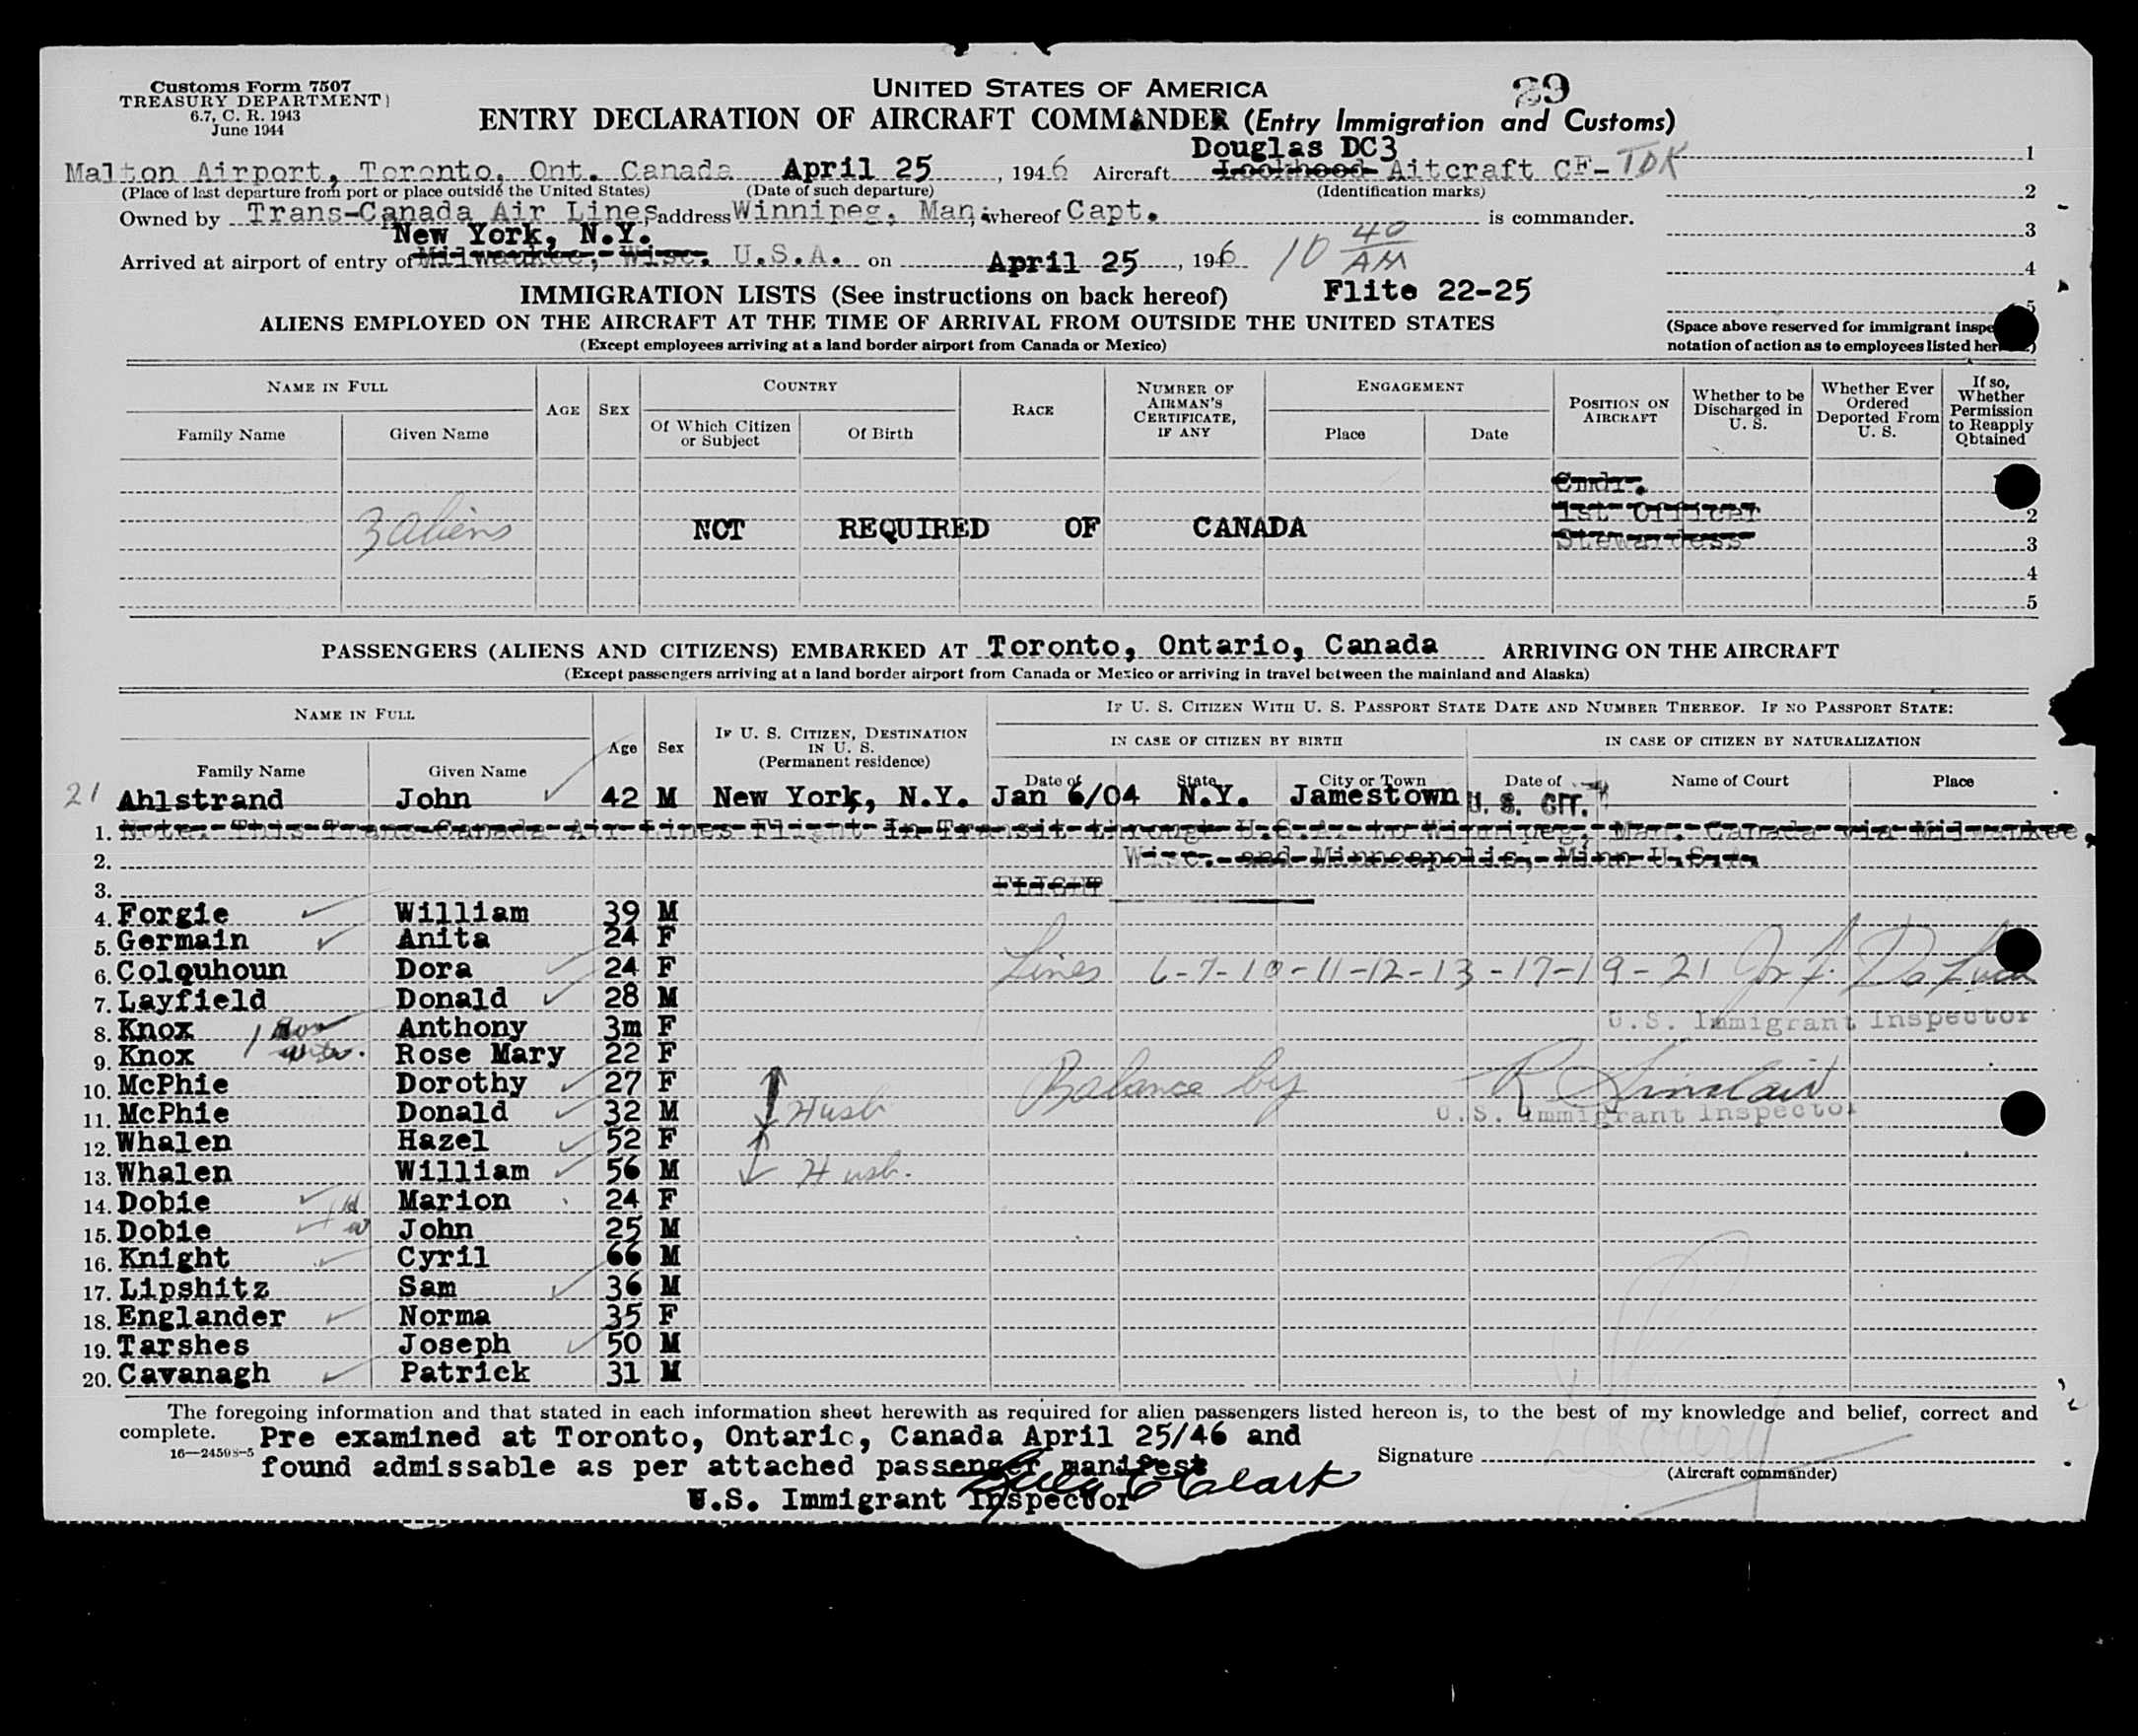 Customs Form 7507
TREASURY DEPARTMENT
6.7, C. R. 1943
June 1944
UNITED STATES OF AMERICA
29
ENTRY DECLARATION OF AIRCRAFT COMMANDER (Entry Immigration and Customs)
Douglas DC3
Malton Airport, Toronto, Ont. Canada April 25, 1946 Aircraft Lockheed Aitcraft CF-TDK 1
(Place of last departure from port or place outside the United States) (Date of such departure) (Identification marks) 2
Owned by Trans-Canada Air Lines, address Winnipeg, Man; whereof Capt. is commander.
3
New York, N.Y.
Arrived at airport of entry of Milwaukee, Wisc. U.S.A. on April 25, 1946 10 40 AM
4
IMMIGRATION LISTS (See instructions on back hereof) Flite 22-25
5
ALIENS EMPLOYED ON THE AIRCRAFT AT THE TIME OF ARRIVAL FROM OUTSIDE THE UNITED STATES
(Space above reserved for immigrant
(Except employees arriving at a land border airport from Canada or Mexico)
notation of action as to employees listed
NAME IN FULL
Family Name Given Name
AGE SEX
COUNTRY
Of Which Citizen or Subject Of Birth
RACE
NUMBER OF AIRMAN'S CERTIFICATE, IF ANY
ENGAGEMENT
Place Date
POSITION ON AIRCRAFT
Whether to be Discharged in U. S.
Whether Ever Ordered Deported From U. S.
If so, Whether Permission to Reapply Obtained
Cmdr.
1st Officer 2
3 aliens NOT REQUIRED OF CANADA
Stewardess 3
4
5
PASSENGERS (ALIENS AND CITIZENS) EMBARKED AT Toronto, Ontario, Canada ARRIVING ON THE AIRCRAFT
(Except passengers arriving at a land border airport from Canada or Mexico or arriving in travel between the mainland and Alaska)
NAME IN FULL
Family Name Given Name
Age Sex
IF U. S. CITIZEN, DESTINATION IN U. S. (Permanent residence)
IF U. S. CITIZEN WITH U. S. PASSPORT STATE DATE AND NUMBER THEREOF. IF NO PASSPORT STATE:
IN CASE OF CITIZEN BY BIRTH IN CASE OF CITIZEN BY NATURALIZATION
Date of State City or Town Date of Name of Court Place
21 Ahlstrand John 42 M New York, N.Y. Jan 6/04 N.Y. Jamestown U. S. CIT.
1. Note: This Trans-Canada Air Lines Flight In Transit through U.S.A. to Winnipeg, Man. Canada via Milwaukee,
2. Wisc. and Minneapolis, Minn U.S.A.
3. FLIGHT
4. Forgie William 39 M
5. Germain Anita 24 F
6. Colquhoun Dora 24 F Lines 6-7-10-11-12-13-17-19-21
7. Layfield Donald 28 M
8. Knox Anthony 3m F U.S. Immigrant Inspector
9. Knox Rose Mary 22 F
10. McPhie Dorothy 27 F Balance by R Sinclair
11. McPhie Donald 32 M Husb U.S. Immigrant Inspector
12. Whalen Hazel 52 F
13. Whalen William 56 M Husb.
14. Dobie Marion 24 F
15. Dobie John 25 M
16. Knight Cyril 66 M
17. Lipshitz Sam 36 M
18. Englander Norma 35 F
19. Tarshes Joseph 50 M
20. Cavanagh Patrick 31 M
The foregoing information and that stated in each information sheet herewith as required for alien passengers listed hereon is, to the best of my knowledge and belief, correct and
complete. Pre examined at Toronto, Ontario, Canada April 25/46 and
16—24598-5 found admissable as per attached passenger manifest
Signature
(Aircraft commander)
U.S. Immigrant Inspector Clark